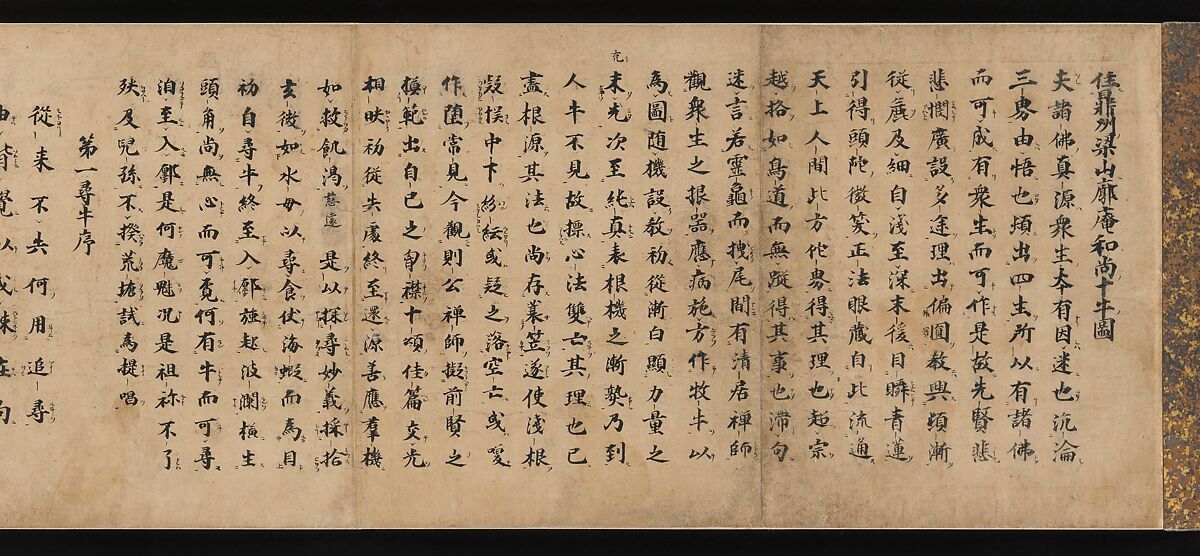 住鼎州梁山廓庵和尚十牛圖
夫諸佛真源衆生本有因迷也沉淪
三界由悟也頓出四生所以有諸佛
而可成有衆生而可作是故先賢悲
悲憫廣設多途理出偏圓教興頓漸
從麁及細自淺至深末後目瞬青蓮
引得頭陀微笑正法眼藏自此流通
天上人間此方佗界得其理也超宗
越格如鳥道而無蹤得其事也滯句
迷言若靈龜而拽尾間有清居禅師
觀衆生之根器應病施方作牧牛以
為圖随機設教初從漸白顯力量之
未充次至純真表根機之漸熟乃到
充
人牛不見故摽心法雙亡其理也已
盡根源其法也尚存蓑笠遂使淺根
疑悞中下紛紜或疑之落空亡或喚
作堕常見今觀則公禅師擬前賢之
模範出自己之胷襟十頌佳篇交光
相映初從失處終至還源善應羣機
如救飢渇慈遠是以探尋妙義採拾
玄微如水母以尋食伏海蝦而為目
初自尋牛終至入鄽強起波瀾橫生
頭角尚無心而可覓何有牛而可尋
洎至入鄽是何魔魅况是祖祢不了
殃及兒孫不揆荒塘試為提唱
第一尋牛序
從来不失何用追尋
由背覺以成疎在向